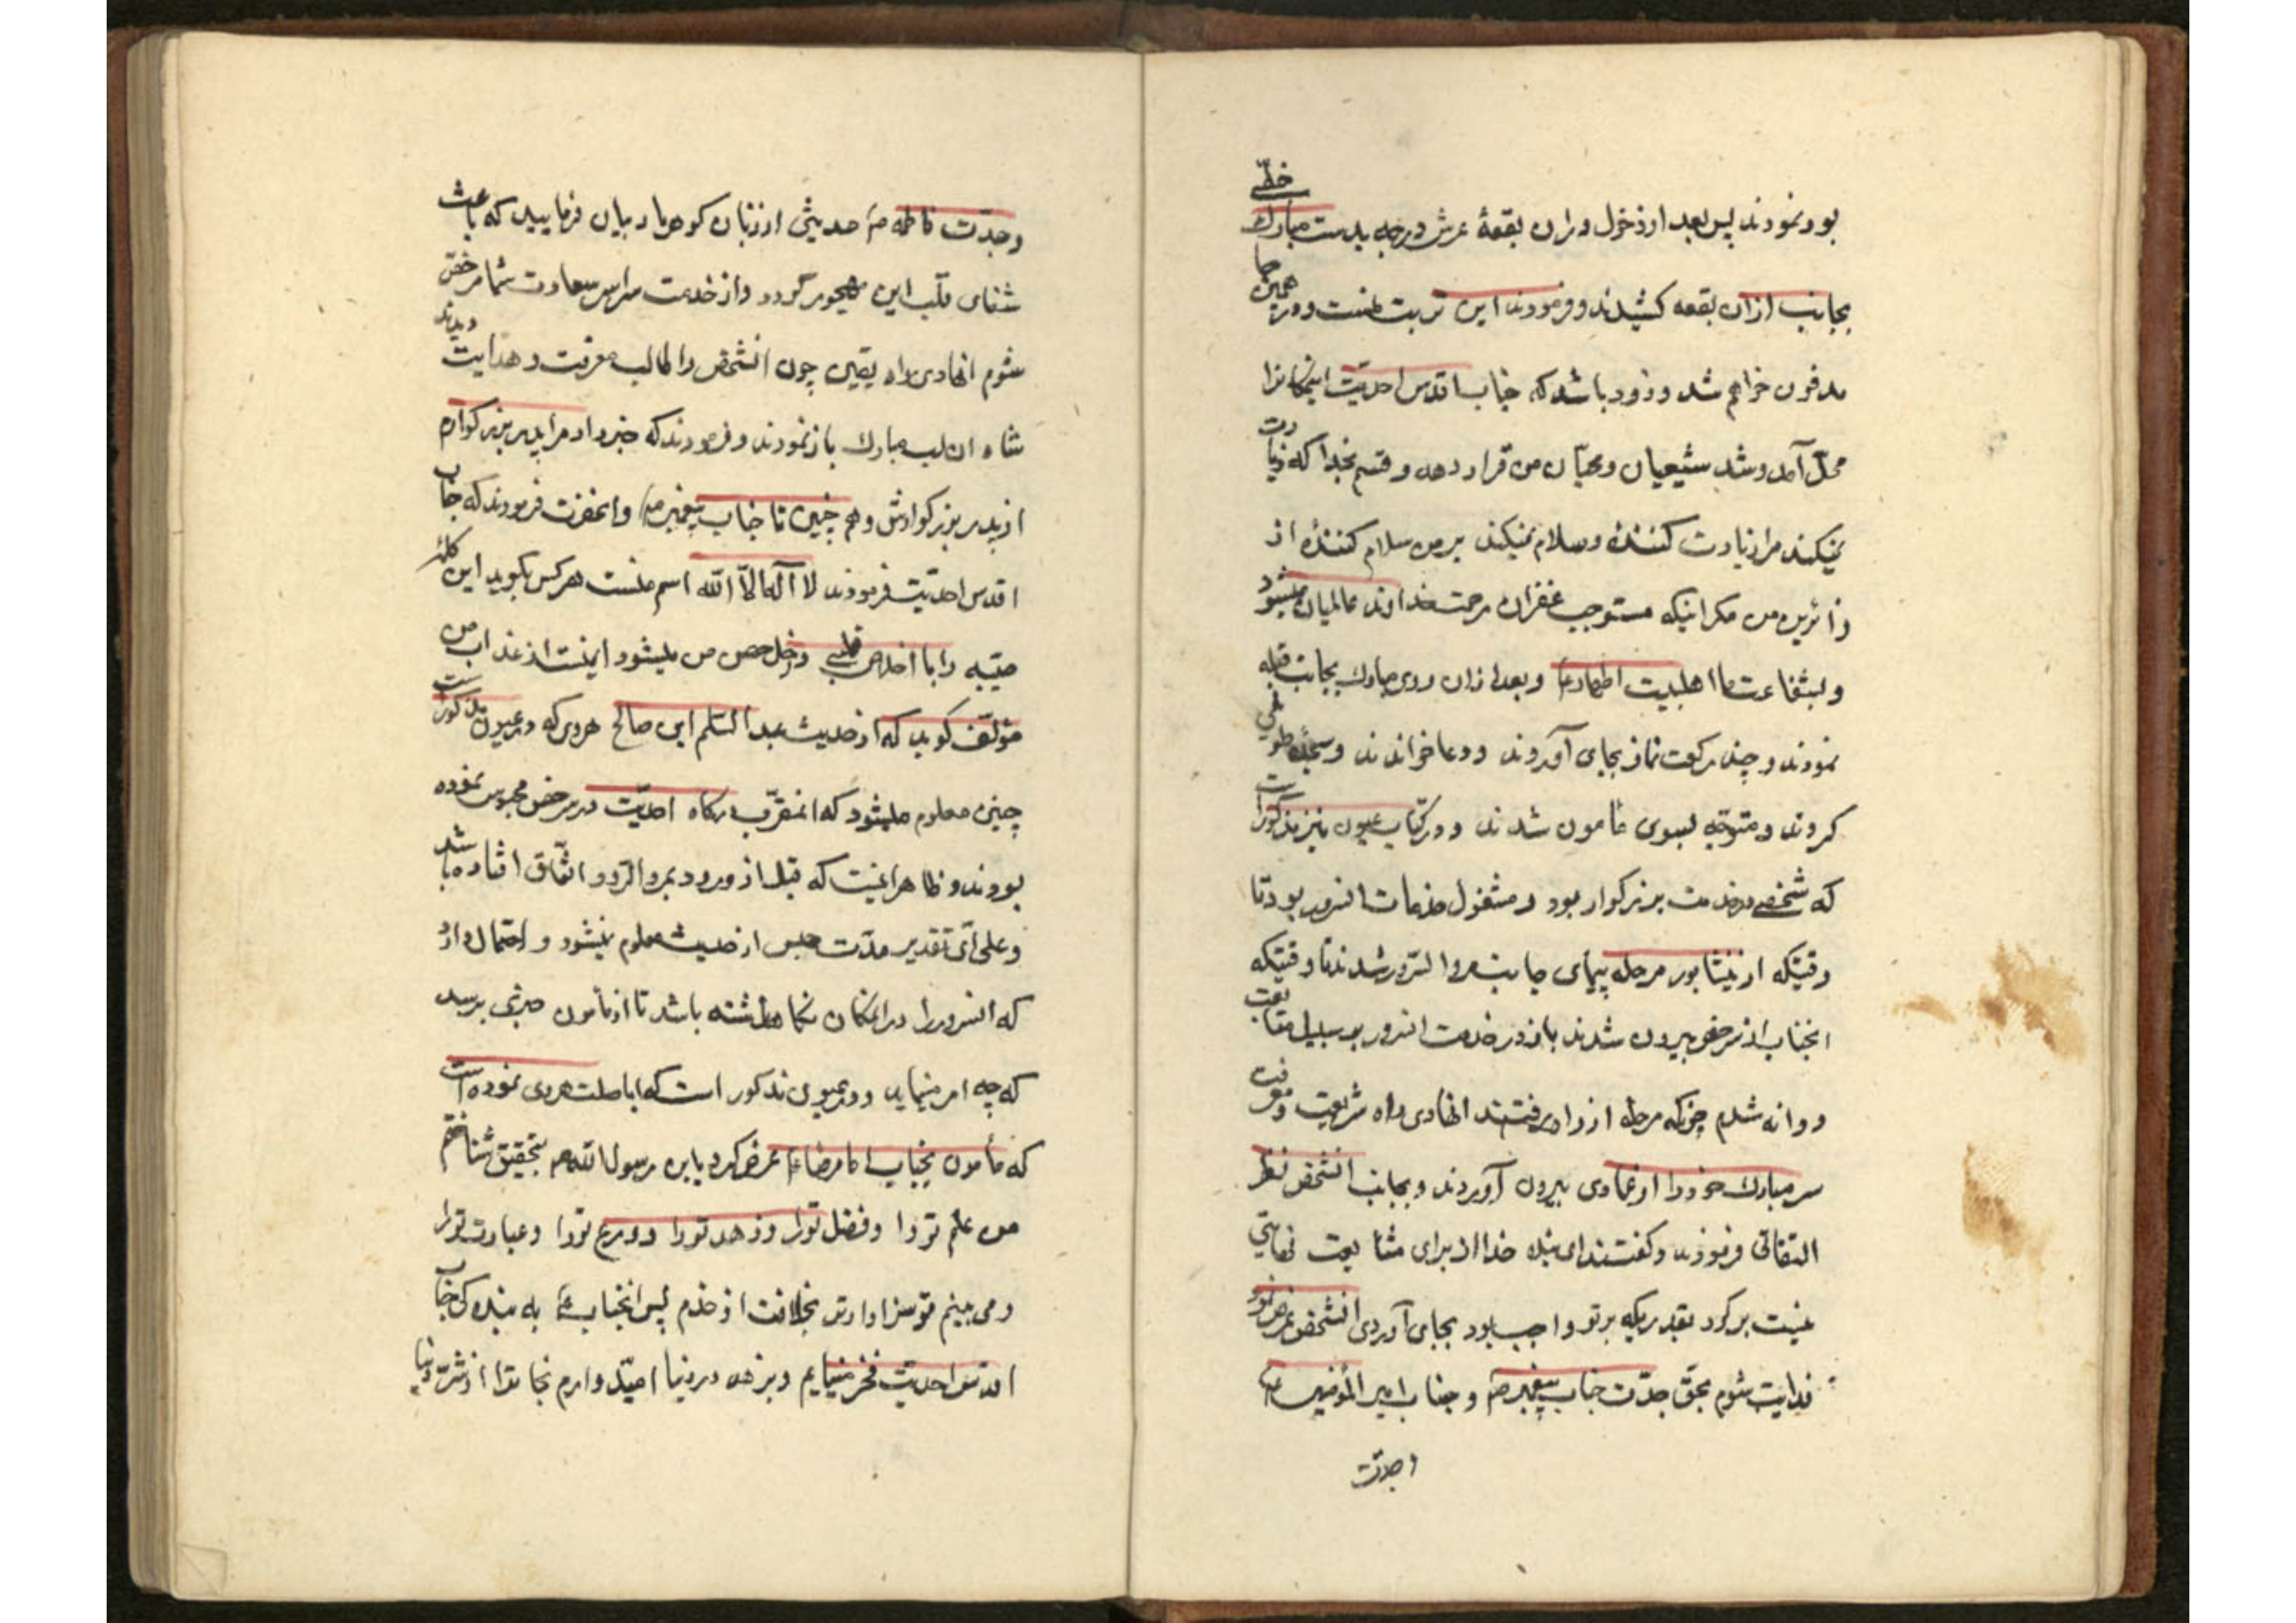 بود نمودند پس بعد از دخول در ان بقعهٔ عرش درجه بدست مبارك خطّی
بجانب ازان بقعه کشیدند و فرمودند این تربت منست و در همین جا
مدفون خواهم شد و زود باشد که جناب اقدس احدیّت اینمکانرا
محلّ آمد و شد شیعیان و محبّان من قرار دهد و قسم بخدا که زیارت
نمیکند مرا زیارت کنندهٔ و سلام نمیکند بر من سلام کنندهٔ از
زائرین من مکر اینکه مستوجب غفران و رحمت خداوند عالمیان میشود
و بشفاعت ما اهلبیت اطهار ع و بعد ازان روی مبارك بجانب قبله
نمودند و چند رکعت نماز بجای آوردند و دعا خواندند و سجدهٔ طولی
کردند و متوجّه بسوی مامون شدند و در کتاب عیون نیز مذکور است
که شخصی در خدمت بزرکوار بود و مشغول خدمات انسرور بود تا
وقتیکه از نیشابور مرحله پیمای جانب مرو السّرور شدند تا وقتیکه
انجناب از سرخس بیرون شدند باز در خدمت انسرور بر سبیل متابعت
روانه شدم چونکه مرحلهٔ از راه رفتند انهادی راه شریعت و معرفت
سر مبارك خود را از عماری بیرون آوردند و بجانب انشخص نظر
التفاتی فرمودند و کفتند ای بنده خدا از برای مشایعت نهایتی
نیست برکرد بقدریکه بر تو واجب بود بجای آوردی انشخص عرض نمود
فدایت شوم بحقّ جدّت جناب پیغمبر ص و جناب امیر المؤمنین ع
و جدّت
و جدّت فاطمه ص حدیثی از زبان کوهر بار بیان فرمایید که باعث
شفای قلب این مهجور کردد و از خدمت سراسر سعادت شما مرخّص
شوم انهادی راه یقین چون انشخص را طالب معرفت و هدایت دیدند
شاه ان لب مبارك باز نمودند و فرمودند که خبر داد مرا پدر بزرکوارم
از پدر بزرکوارش و هم چنین تا جناب پیغمبر ص و انحضرت فرمودند که جناب
اقدس احدیّت فرمودند لا آله الاّ الله اسم منست هر کس بکوید این کلمهٔ
طیّبه را با اخلاص قلبی داخل حصن من میشود ایمنست از عذاب من
مؤلّف کوید که از حدیث عبد السّلام ابن صالح هروی که در عیون مذکور است
چنین معلوم میشود که انمقرّب درکاه احدیّت در سرخس محبوس نموده
بودند و ظاهر اینست که قبل از ورود بمرو السّرور اتّفاق افتاده باشد
و علی ایّ تقدیر مدّت حبس از حدیث معلوم نمیشود و احتمال دارد
که انسرور را در انمکان نکاه داشته باشد تا از مامون خبری برسد
که چه امر مینماید و در عیون مذکور است که اباصلت هروی نموده است
که مأمون بجناب امام رضا ع عرض کرد یابن رسول الله ص بتحقیق شناختم
من علم تو را و فضل تورا و زهد تورا و ورع تورا و عبادت تورا
و می بینم تو سزاوارتر بخلافت از خودم پس انجناب ع به بنده کی جناب
اقدس احدیّت فخر مینمایم و بزهد در دنیا امیّد دارم نجاترا از شرّ دنیا